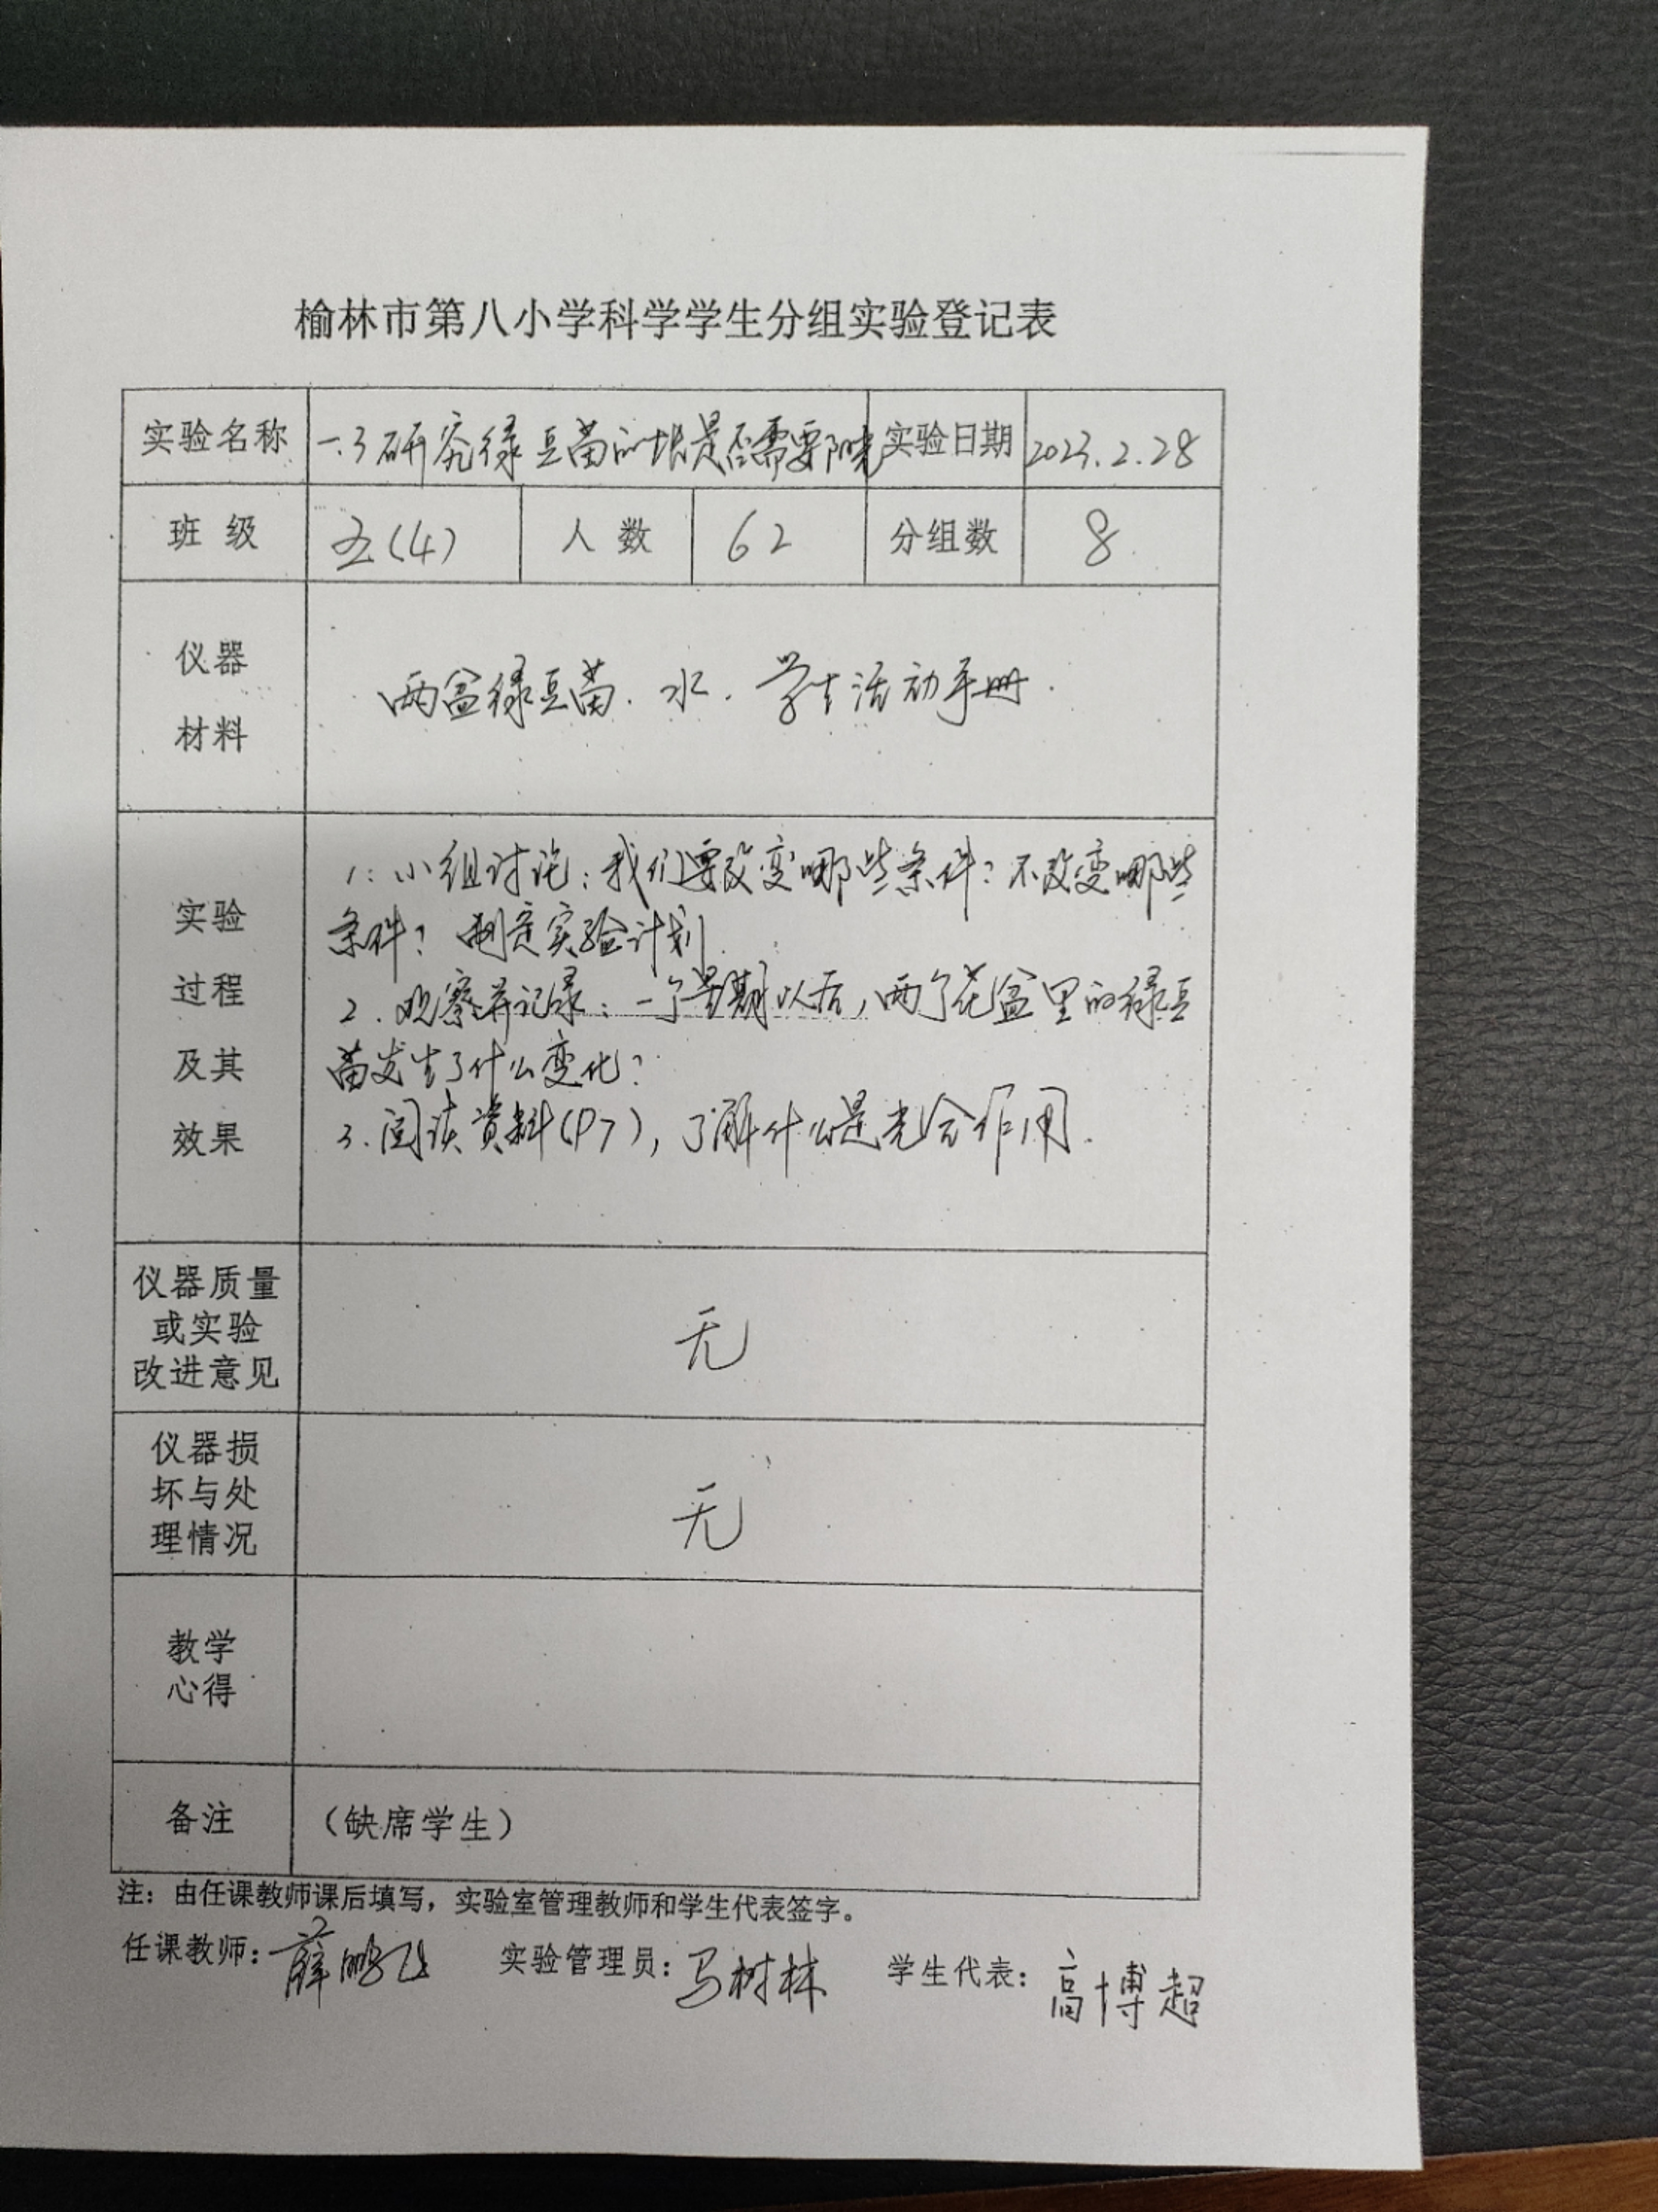 榆林市第八小学科学学生分组实验登记表
实验名称 一.3研究绿豆苗的长是否需要阳光 实验日期 2023.2.28
班级 五(4) 人数 62 分组数 8
仪器
材料
两盆绿豆苗.水.学生活动手册.
实验
过程
及其
效果
1:小组讨论:我们要改变哪些条件?不改变哪些
条件?制定实验计划.
2.观察并记录:一个星期以后,两个花盆里的绿豆
苗发生了什么变化?
3.阅读资料(P7),了解什么是光合作用.
仪器质量
或实验
改进意见
无
仪器损
坏与处
理情况
无
教学
心得
备注 (缺席学生)
注:由任课教师课后填写,实验室管理教师和学生代表签字。
任课教师:薛鹏飞 实验管理员:马树林 学生代表:高博超